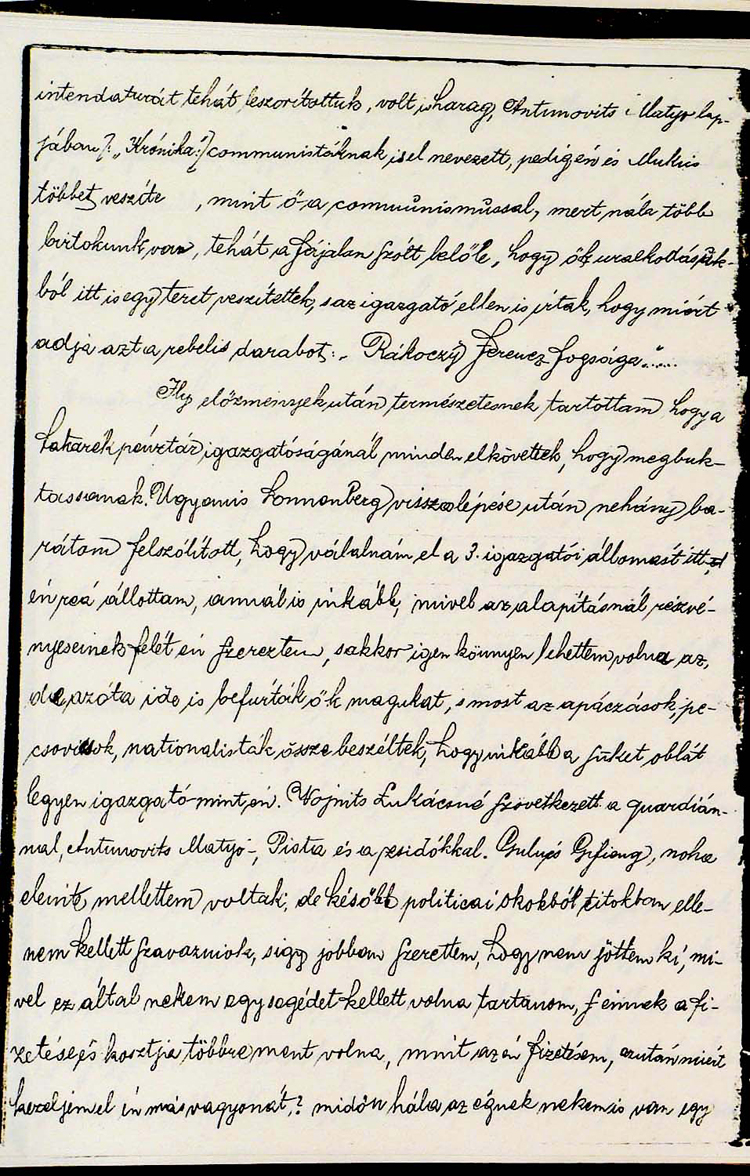 intendaturát tehát leszorítottuk, volt is harag, Antunovits i Matyo lap-
jában /: „Krónika":/ communistáknak is el nevezett, pedig én és Mukus
többet veszite , mint ő a communismussal, mert nála több
birtokunk van, tehát a fájdalom szólt belőle, hogy ők uralkodásuk-
ból itt is egy teret veszítettek, s az igazgató ellen is írtak, hogy miért
adja azt a rebelis darabot: „ Rákoczÿ Ferencz fogsága....."
Ily előzmenyek után természetesnek tartottam hogy a
takarék pénztár igazgatóságánál minden elkövettek, hogy megbuk-
tassanak. Ugyanis Sonnenberg visszalépése után nehány ba-
rátom felszólított, hogy válalnám el a 3. igazgatói állomást itt,
én reá állottam, annál is inkább, mivel az alapításnál részvé-
nyeseinek felét én szereztem, s akkor igen könnyen lehettem volna az,
de azóta ide is befurták ők magukat, s most az apáczások, pe-
csovicsok, nationalisták össze beszéltek, hogy inkább a süket oblát
legyen igazgató mint én. Vojnits Lukácsné szövetkezett a quardián-
nal, Antunovits Matyo-, Pista és a zsidókkal. Gulyás Gysiang, noha
eleinte mellettem voltak, de később politicai okokból titokban elle-
nem kellett szavazniok, s így jobban szerettem, hogy nem jöttem ki, mi-
vel ez által nekem egy segédet kellett volna tartanom, s ennek a fi-
zetése és kosztja többre ment volna, mint az én fizetésem, azután miért
kezeljem el én más vagyonát? midőn hála az égnek nekem is van egy